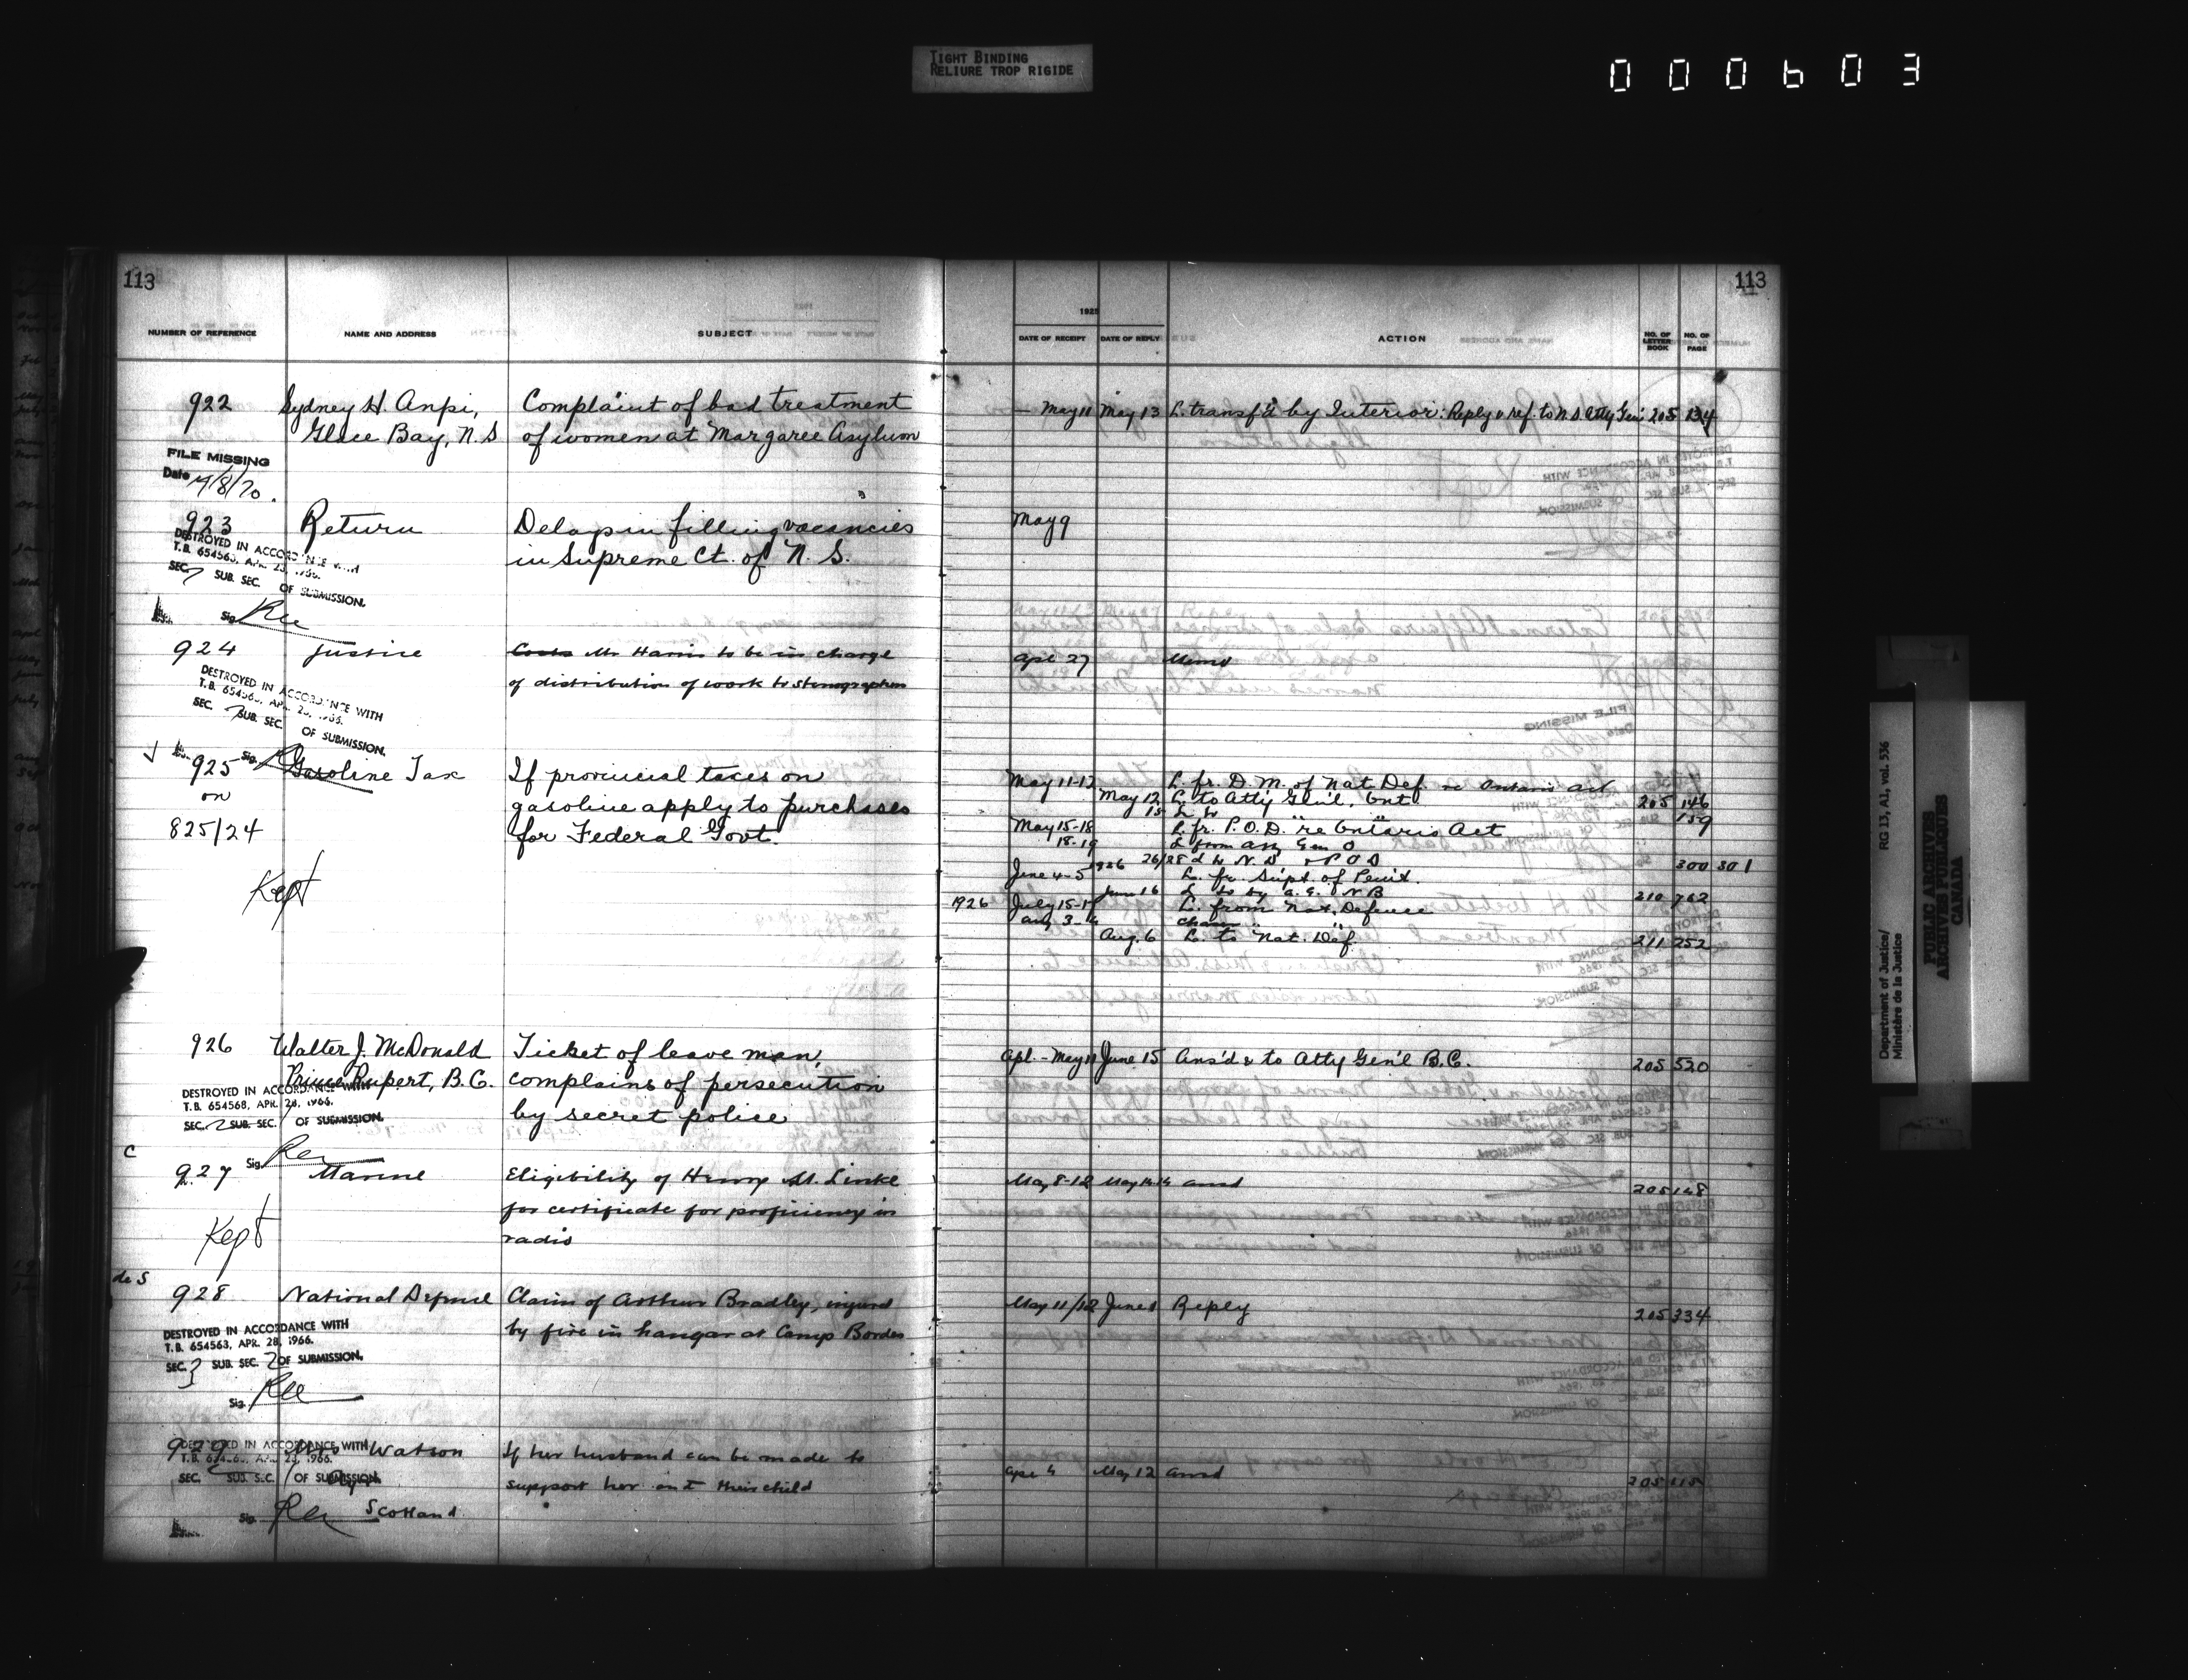 TIGHT BINDING
RELIURE TROP RIGIDE
000603
113
113
1925
NUMBER OF REFERENCE NAME AND ADDRESS SUBJECT DATE OF RECEIPT DATE OF REPLY ACTION NO. OF LETTER BOOK NO. OF PAGE
922 Sydney H. Anpi, Complaint of bad treatment — May 11 May 13 L. transf'd by Interior: Reply & ref. to N.S. Atty Gen'l 205 134
Glace Bay, N.S of women at Margaree Asylum
FILE MISSING
Date 4/8/70.
923 Return Delays in filling vacancies May 9
in Supreme Ct. of N. S.
DESTROYED IN ACCORDANCE WITH
T.B. 654563, APR. 28, 1966.
SEC. 7 SUB. SEC. OF SUBMISSION.
Sig.
924 Justice Mr Harris to be in charge Apl 27 Memo
of distribution of work to stenographers
DESTROYED IN ACCORDANCE WITH
T.B. 654563, APR. 28, 1966.
SEC. 7 SUB. SEC. OF SUBMISSION.
Sig.
925 Gasoline Tax If provincial taxes on May 11-12 L. fr. D. M. of Nat Def. re Ontario Act
on gasoline apply to purchases May 12 L. to Atty Gen'l, Ont 205 146
15 159
825/24 for Federal Govt. May 15-18 L. fr. P.O.D. re Ontario Act
18-19 L from Atty Gen O
1926 26/28 L to N. D & P O D 300 301
Kept June 4-5 L. fr. Supt. of Penit.
June 16 L to A. G. N B 210 762
1926 July 15-17 L. from Nat. Defence
Aug 3-4
Aug. 6 L. to Nat. Def. 211 252
926 Walter J. McDonald Ticket of leave man, Apl. - May 11 June 15 Ans'd & to Atty Gen'l B.C. 205 520
Prince Rupert, B.C. complains of persecution
by secret police
DESTROYED IN ACCORDANCE WITH
T.B. 654568, APR. 28, 1966.
SEC. 2 SUB. SEC. 1 OF SUBMISSION.
Sig.
C
927 Marine Eligibility of Henry M. Linke May 8-12 May 14 ansd 205 148
for certificate for proficiency in
Kept radio
de S
928 National Defence Claim of Arthur Bradley, injured May 11/12 June 1 Reply 205 334
by fire in hangar at Camp Borden
DESTROYED IN ACCORDANCE WITH
T.B. 654563, APR. 28, 1966.
SEC. 3 SUB. SEC. 2 OF SUBMISSION.
Sig.
929 Mrs Watson If her husband can be made to
support her and their child Apl 4 May 12 ansd 205 115
DESTROYED IN ACCORDANCE WITH
T.B. 654563, APR. 28, 1966.
SEC. SUB. SEC. 1 OF SUBMISSION.
Scotland
Sig.
Department of Justice/ RG 13, A1, vol. 536
Ministère de la Justice
PUBLIC ARCHIVES
ARCHIVES PUBLIQUES
CANADA